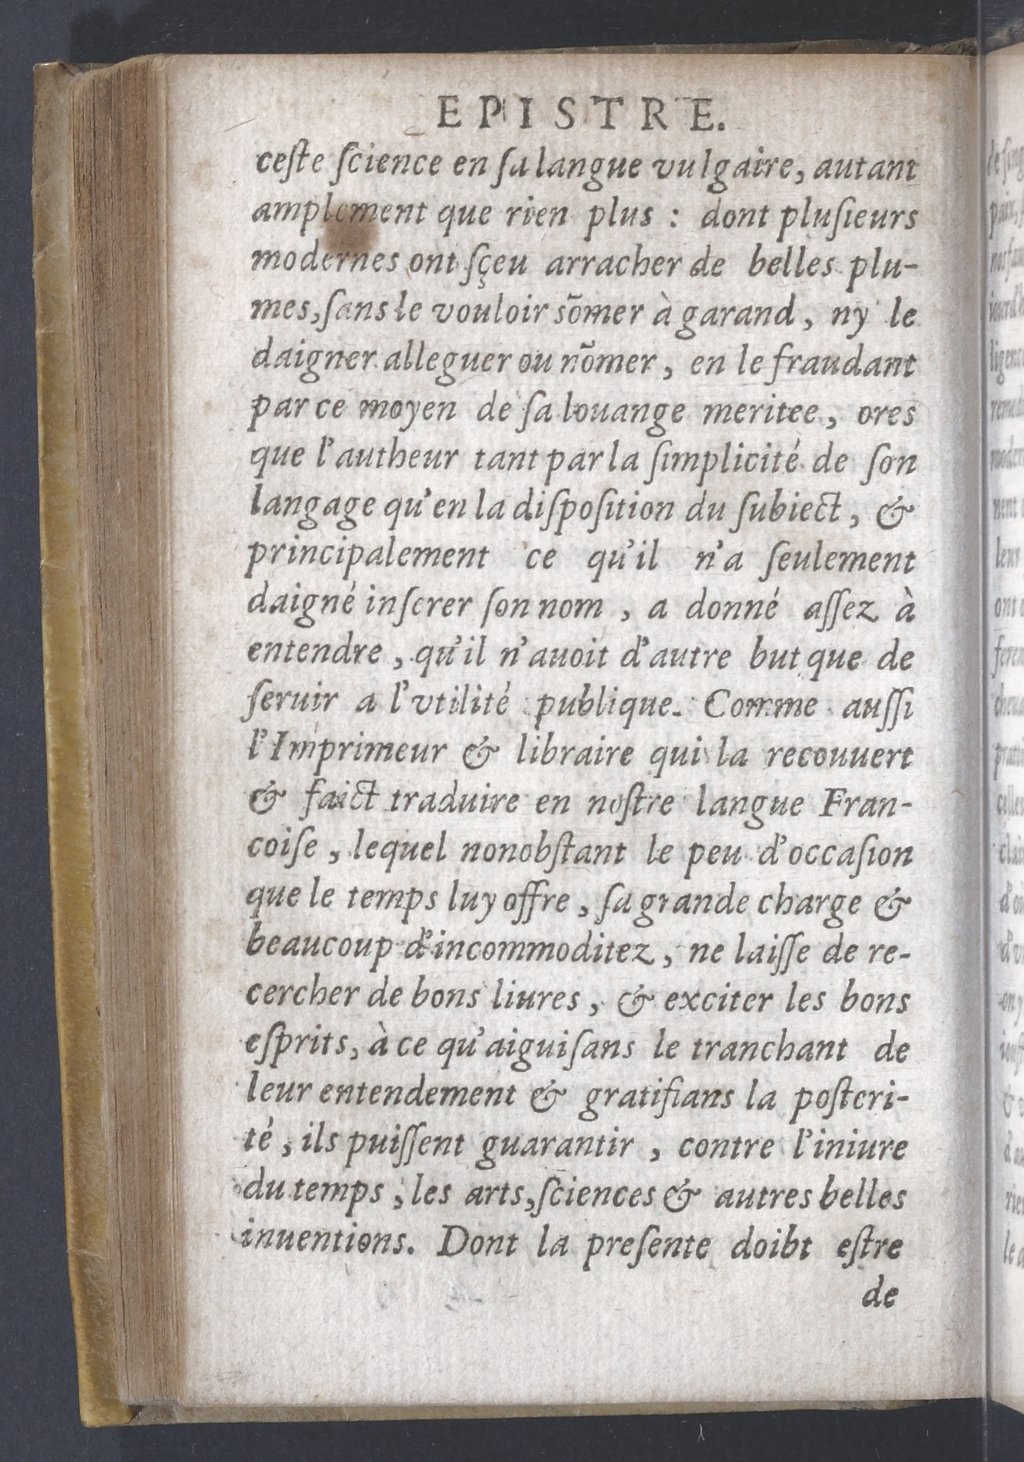 EPISTRE.
ceſte ſcience en ſa langue vulgaire, autant
amplement que rien plus : dont pluſieurs
modernes ont ſçeu arracher de belles plu-
mes, ſans le vouloir sõmer à garand, ny le
daigner alleguer ou nõmer, en le fraudant
par ce moyen de ſa louange meritee, ores
que l'autheur tant par la ſimplicité de ſon
langage qu'en la diſpoſition du ſubiect, &
principalement ce qu'il n'a ſeulement
daigné inſerer ſon nom, a donné aſſez à
entendre, qu'il n'auoit d'autre but que de
ſeruir a l'vtilité publique. Comme auſſi
l'Imprimeur & libraire qui la recouuert
& faict traduire en noſtre langue Fran-
coiſe, lequel nonobſtant le peu d'occaſion
que le temps luy offre, ſa grande charge &
beaucoup d'incommoditez, ne laiſſe de re-
cercher de bons liures, & exciter les bons
eſprits, à ce qu'aiguiſans le tranchant de
leur entendement & gratifians la poſteri-
té, ils puiſſent guarantir, contre l'iniure
du temps, les arts, ſciences & autres belles
inuentions. Dont la preſente doibt eſtre
de